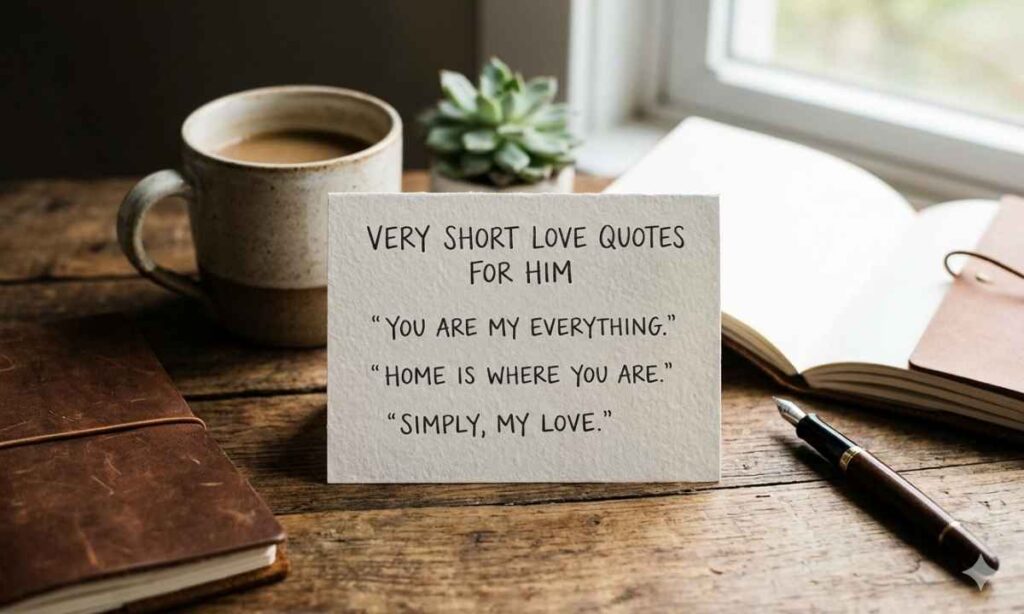 VERY SHORT LOVE QUOTES
FOR HIM
“YOU ARE MY EVERYTHING.”
“HOME IS WHERE YOU ARE.”
“SIMPLY, MY LOVE.”